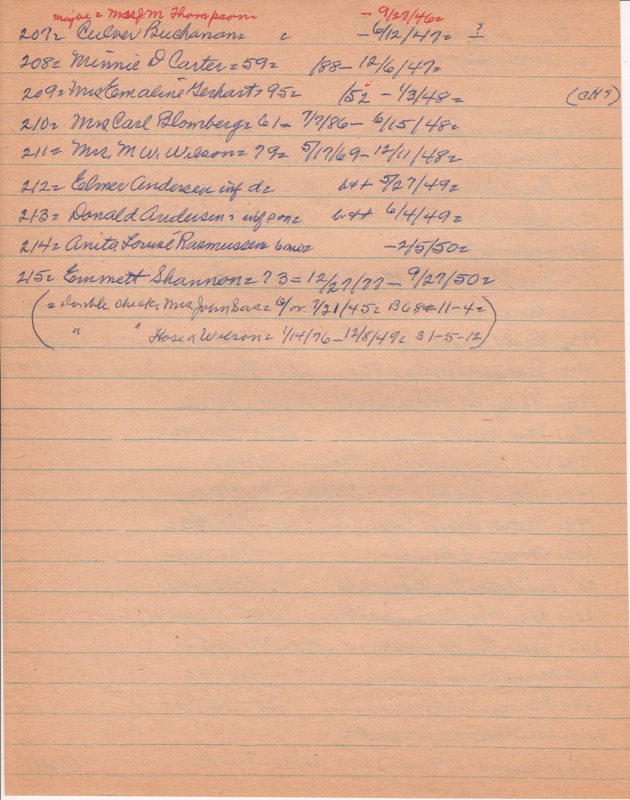 maybe = Mrs J M Thompson= - 9/27/46=
207= Culver Buchanan= = - 6/12/47= ?
208= Minnie D Carter = 59= /88 - 12/6/47=
209= Mrs Emaline Gerhart= 95= /52 - 1/3/48= (CH?)
210= Mrs Carl Blomberg= 61= 7/7/86 - 6/15/48=
211= Mrs. M W. Wilson= 79= 5/17/69 - 12/11/48=
212= Elmer Andersen inf d= b++ 5/27/49=
213= Donald Andersen= inf son= b++ 6/4/49=
214= Anita Louise Rasmussen 6mo= - 2/5/50=
215= Emmett Shannon = 73 = 12/27/77 - 9/27/50=
(= double check= Mrs John Sas= 6/or 7/21/45= B68=11-4=
" " Hosea Wilson= 1/14/76 - 12/8/49= 31-5-12)